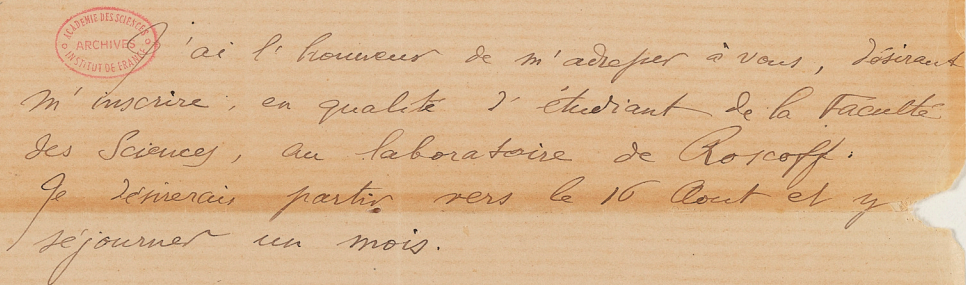 ACADEMIE DES SCIENCES
ARCHIVES
INSTITUT DE FRANCE
J'ai l'honneur de m'adresser à vous, désirant
m'inscrire, en qualité d'étudiant de la Faculté
des Sciences, au laboratoire de Roscoff.
Je désirerais partir vers le 16 Aout et y
séjourner un mois.